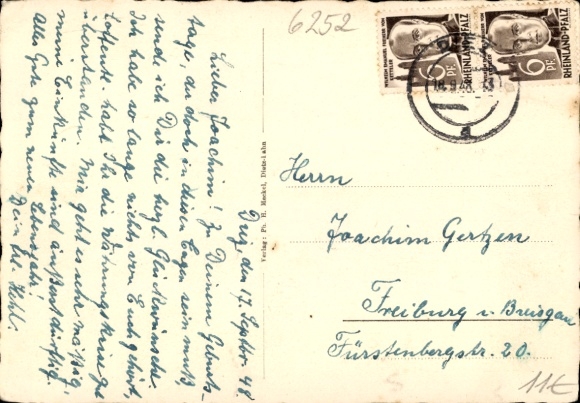 6252
WILHELM EMANUEL FREIHERR VON KETTELER
6 PF.
RHEINLAND-PFALZ
6 PF.
RHEINLAND-PFALZ
Diez, den 17. Septbr. 48.
Lieber Joachim! Zu Deinem Geburts-
tage, der doch in diesen Tagen sein muß,
sende ich Dir die herzl. Glückwünsche.
Ich habe so lange nichts von Euch gehört,
hoffentl. habt Ihr die Währungskrise gt
überstanden. Mir geht es sehr mäßig,
meine Einkünfte sind äußerst dürftig.
Alles Gute zum neuen Lebensjahr!
Dein
Verlag: Ph. H. Meckel, Diez-Lahn
Herrn
Joachim Gertzen
Freiburg i. Breisgau
Fürstenbergstr. 20.
11€